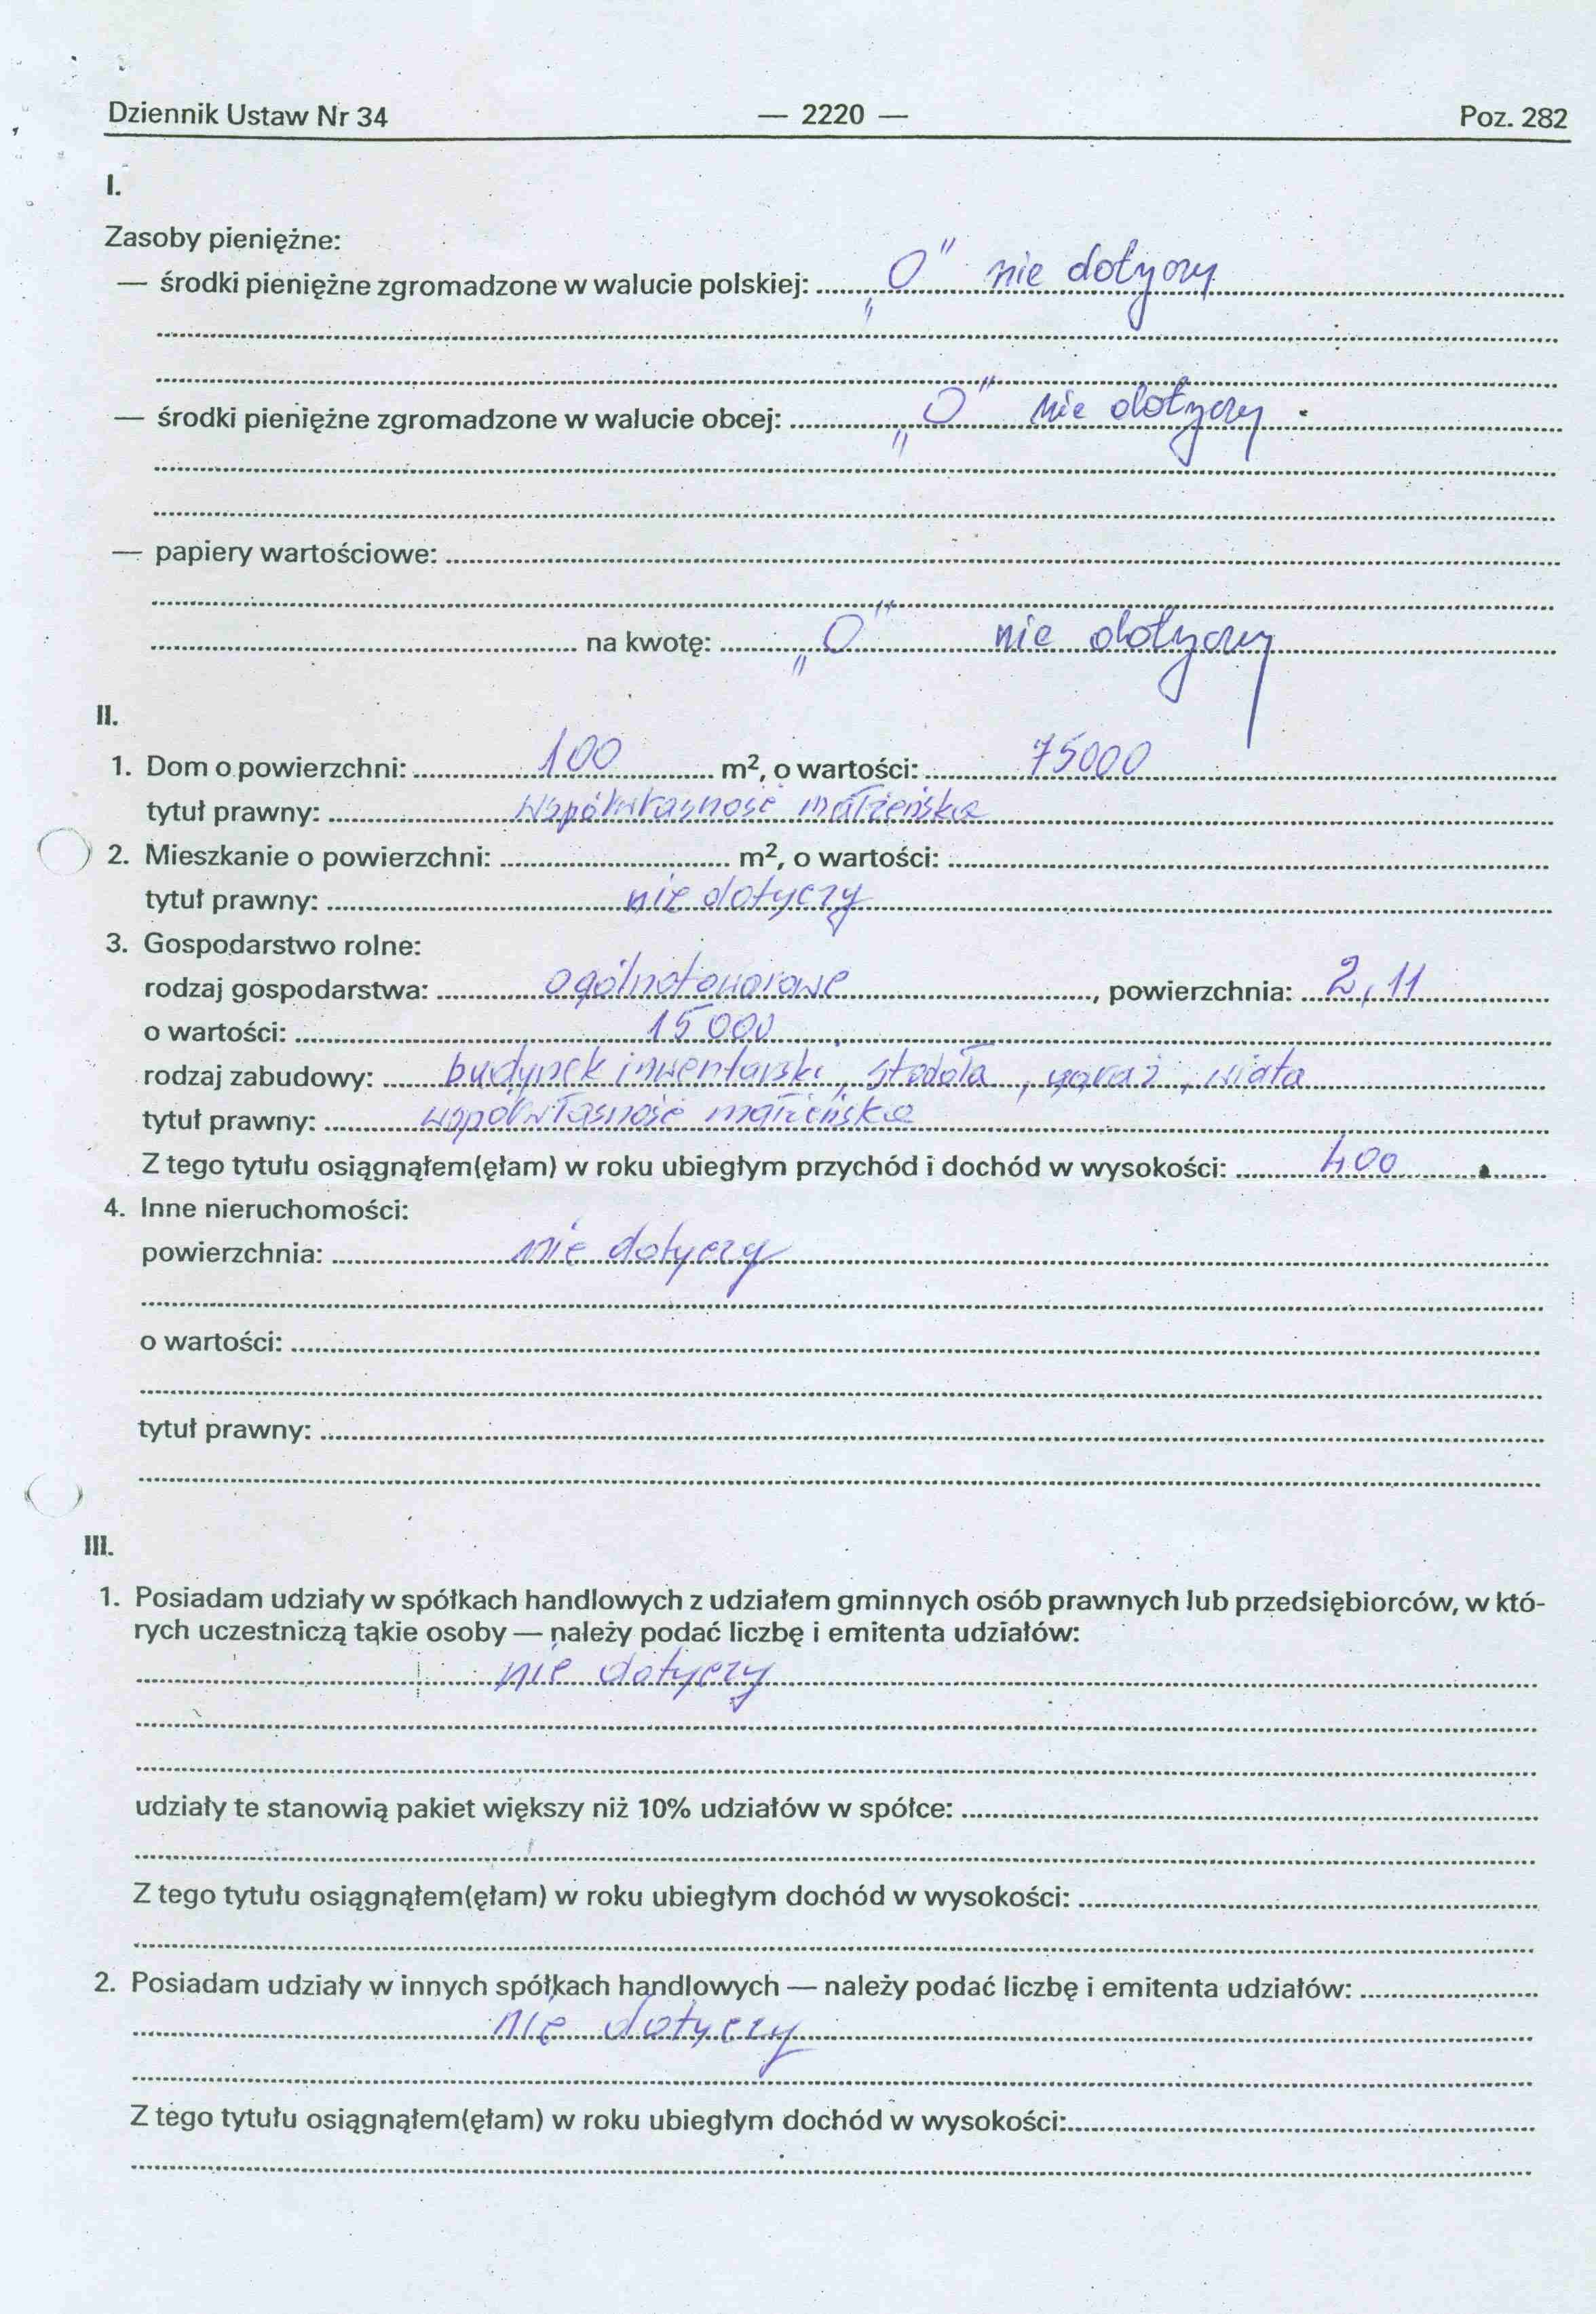 Dziennik Ustaw Nr 34 — 2220 — Poz. 282
I.
Zasoby pieniężne:
— środki pieniężne zgromadzone w walucie polskiej: „0" nie dotyczy
— środki pieniężne zgromadzone w walucie obcej: „0" nie dotyczy
— papiery wartościowe:
na kwotę: „0" nie dotyczy
II.
1. Dom o powierzchni: 100 m², o wartości: 75000
tytuł prawny: współwłasność małżeńska
2. Mieszkanie o powierzchni: m², o wartości:
tytuł prawny: nie dotyczy
3. Gospodarstwo rolne:
rodzaj gospodarstwa: ogólnotowarowe, powierzchnia: 2,11
o wartości: 15000
rodzaj zabudowy: budynek inwentarski, stodoła, garaż, wiata
tytuł prawny: współwłasność małżeńska
Z tego tytułu osiągnąłem(ęłam) w roku ubiegłym przychód i dochód w wysokości: 400
4. Inne nieruchomości:
powierzchnia: nie dotyczy
o wartości:
tytuł prawny:
III.
1. Posiadam udziały w spółkach handlowych z udziałem gminnych osób prawnych lub przedsiębiorców, w któ-
rych uczestniczą takie osoby — należy podać liczbę i emitenta udziałów:
nie dotyczy
udziały te stanowią pakiet większy niż 10% udziałów w spółce:
Z tego tytułu osiągnąłem(ęłam) w roku ubiegłym dochód w wysokości:
2. Posiadam udziały w innych spółkach handlowych — należy podać liczbę i emitenta udziałów:
nie dotyczy
Z tego tytułu osiągnąłem(ęłam) w roku ubiegłym dochód w wysokości: